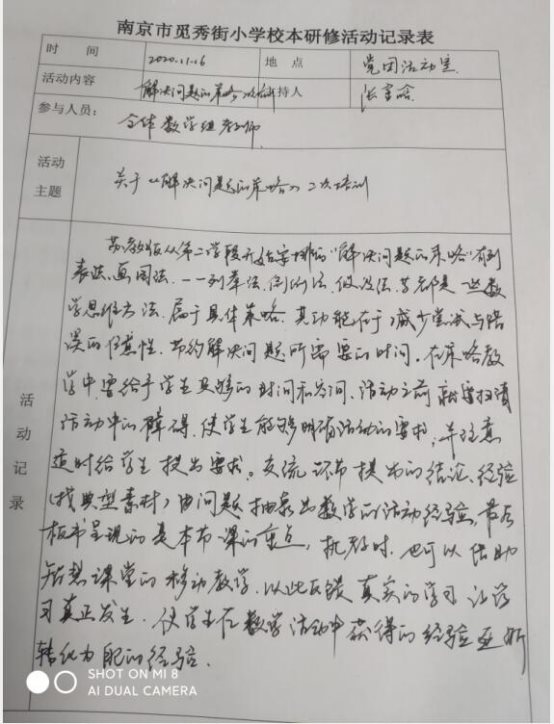 南京市觅秀街小学校本研修活动记录表
时 间 2020.11.16 地 点 党团活动室
活动内容 解决问题的策略 主持人
参与人员： 全体数学组教师
活动主题 关于《解决问题的策略》二次培训
活动记录
苏教版从第二学段开始安排的“解决问题的策略”有列
表法、画图法、一一列举法、倒推法、假设法，等都是一些数
学思维方法，属于具体策略，其功能在于减少尝试与错
误的任意性，节约解决问题所需要的时间。在策略教
学中要给予学生足够的时间和空间，活动之前就要扫清
活动中的障碍，使学生能够明确活动的要求，并注意
适时给学生提出要求。交流环节提出的结论、经验
（找典型素材）由问题抽象出数学的活动经验，最后
板书呈现的是本节课的重点，执教时，也可以借助
智慧课堂的移动教学，以此反馈真实的学习，让学
习真正发生，使学生在数学活动中获得的经验
转化为 的经验。
SHOT ON MI 8
AI DUAL CAMERA